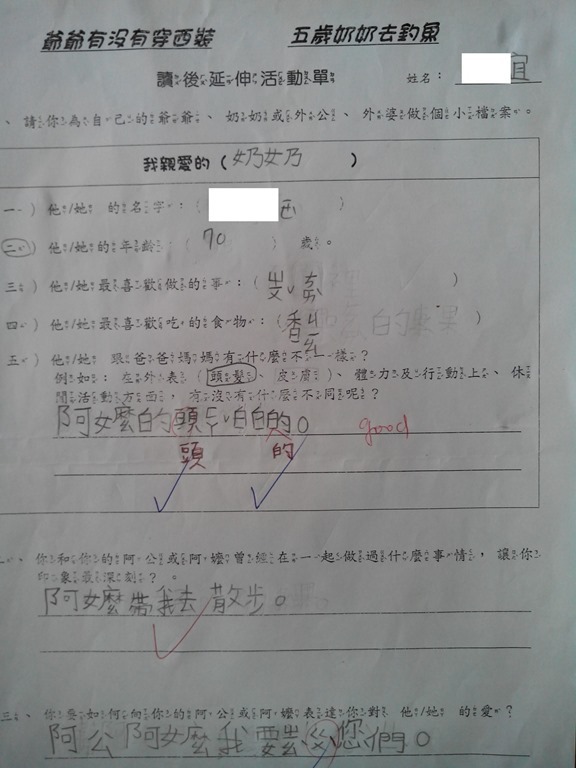 爺爺有沒有穿西裝 五歲奶奶去釣魚
讀後延伸活動單 姓名： 宜
、請你為自己的爺爺、奶奶或外公、外婆做個小檔案。
我親愛的（奶奶）
一）他/她 的名字：（ ）
二）他/她的年齡（70）歲。
三）他/她最喜歡做的事：（ ）
四）他/她最喜歡吃的食物：（香ㄐㄧㄠ）
五）他/她 跟爸爸媽媽有什麼不一樣？
例如：在外表（頭髮、皮膚）、體力及行動上、休
閒活動方面，有沒有什麼不同呢？
阿嬤的頭ㄈㄚˇ白白的。 good
頭 的
、你和你的阿公或阿嬤曾經在一起做過什麼事情，讓你
印象最深刻？。
阿嬤帶我去散步。
三、你要如何向你的阿公或阿嬤表達你對 他/她 的愛？
阿公阿嬤我要 您們。